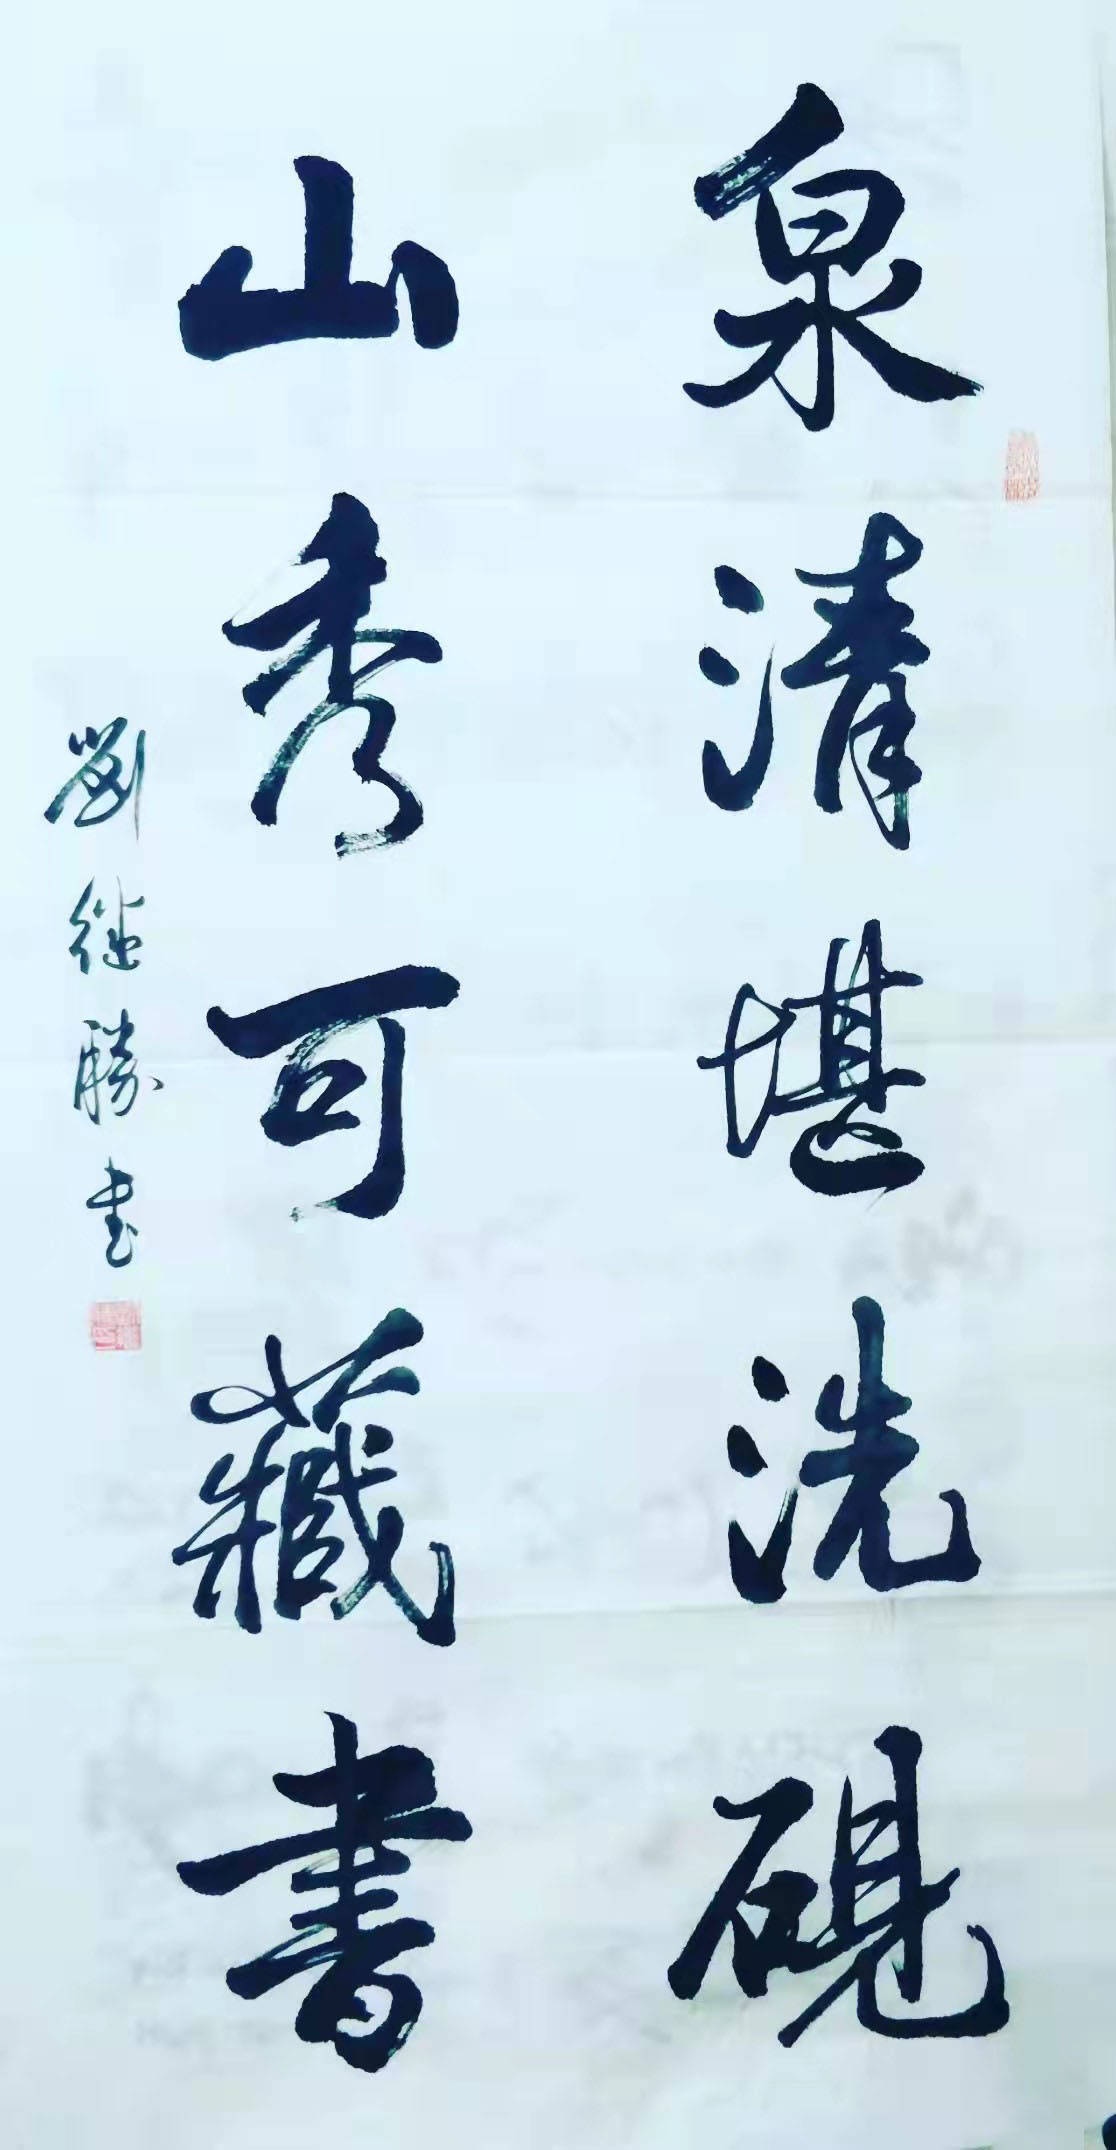 泉清堪洗硯
山秀可藏書
劉繼勝書